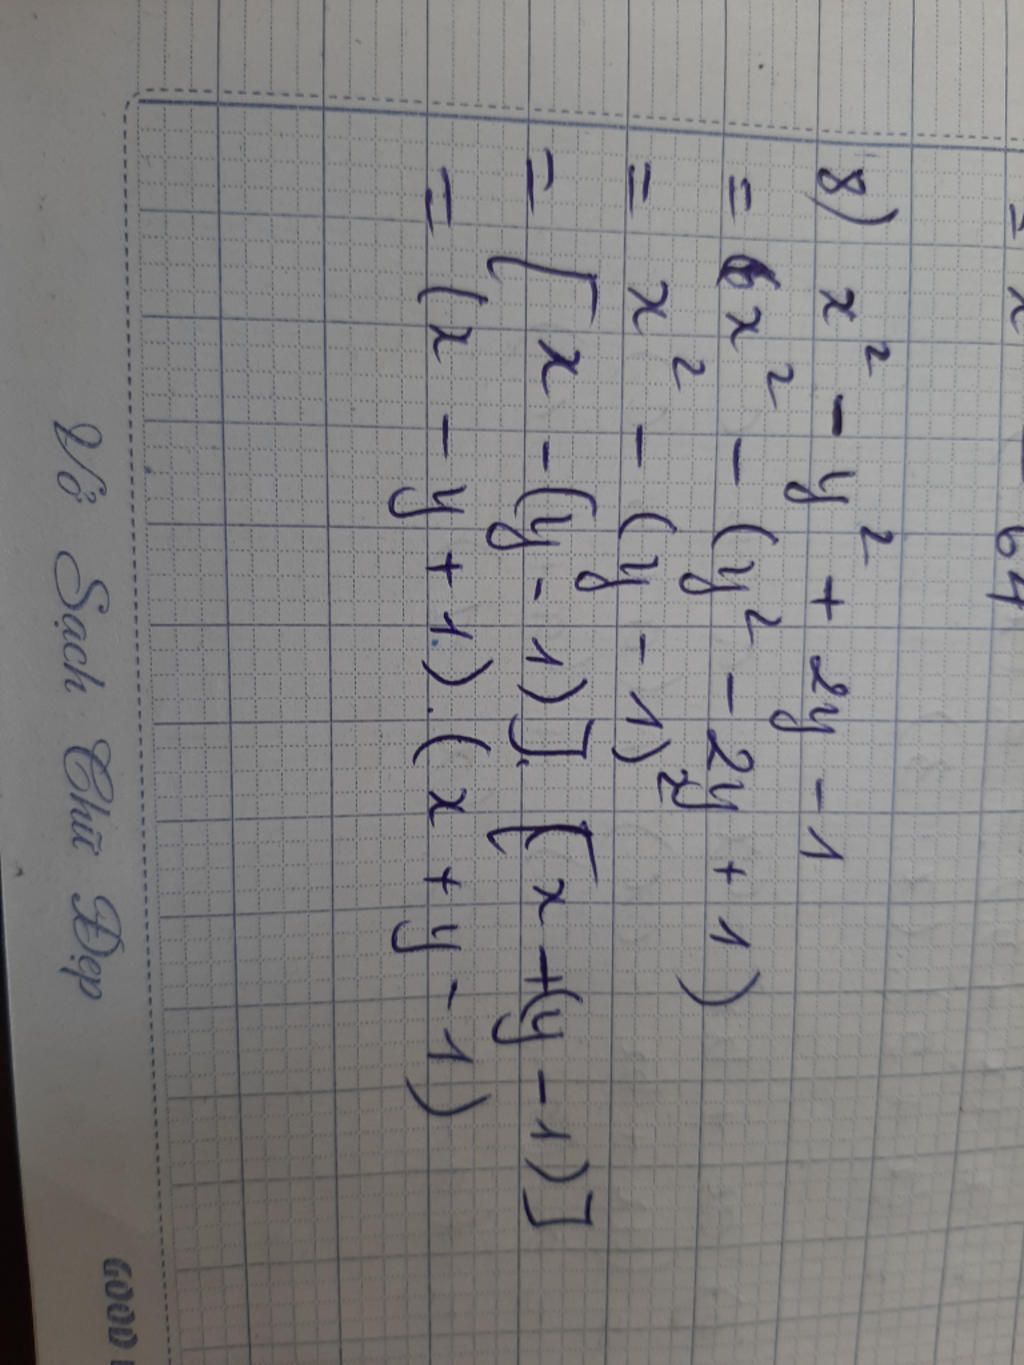 = x - 64
8) x² - y² + 2y - 1
= x² - (y² - 2y + 1)
= x² - (y - 1)²
= [x - (y - 1)]. [x + (y - 1)]
= (x - y + 1).(x + y - 1)
Vở Sạch Chữ Đẹp
GOOD